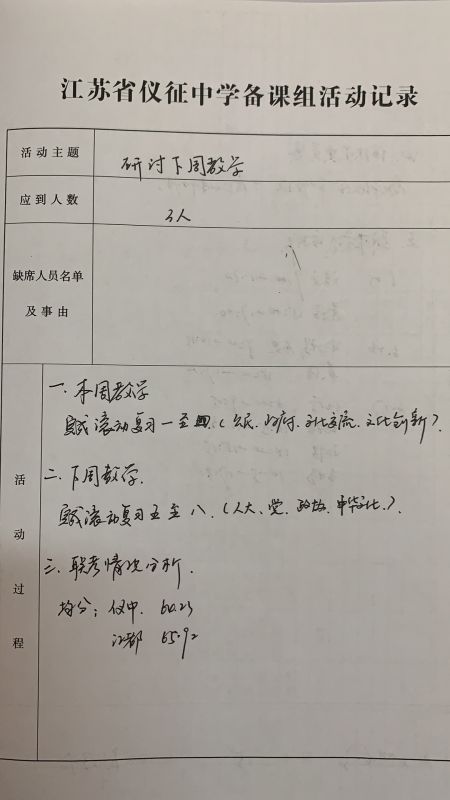 江苏省仪征中学备课组活动记录
活动主题
研讨下周教学
应到人数
3人
缺席人员名单
及事由
活动过程
一、本周教学
完成滚动复习一至四(公民、政府、文化交流、文化创新)、
二、下周教学、
完成滚动复习五至八、(人大、党、政协、中华文化、)、
三、联考情况分析、
均分:仪中、60.23
江都 65.92